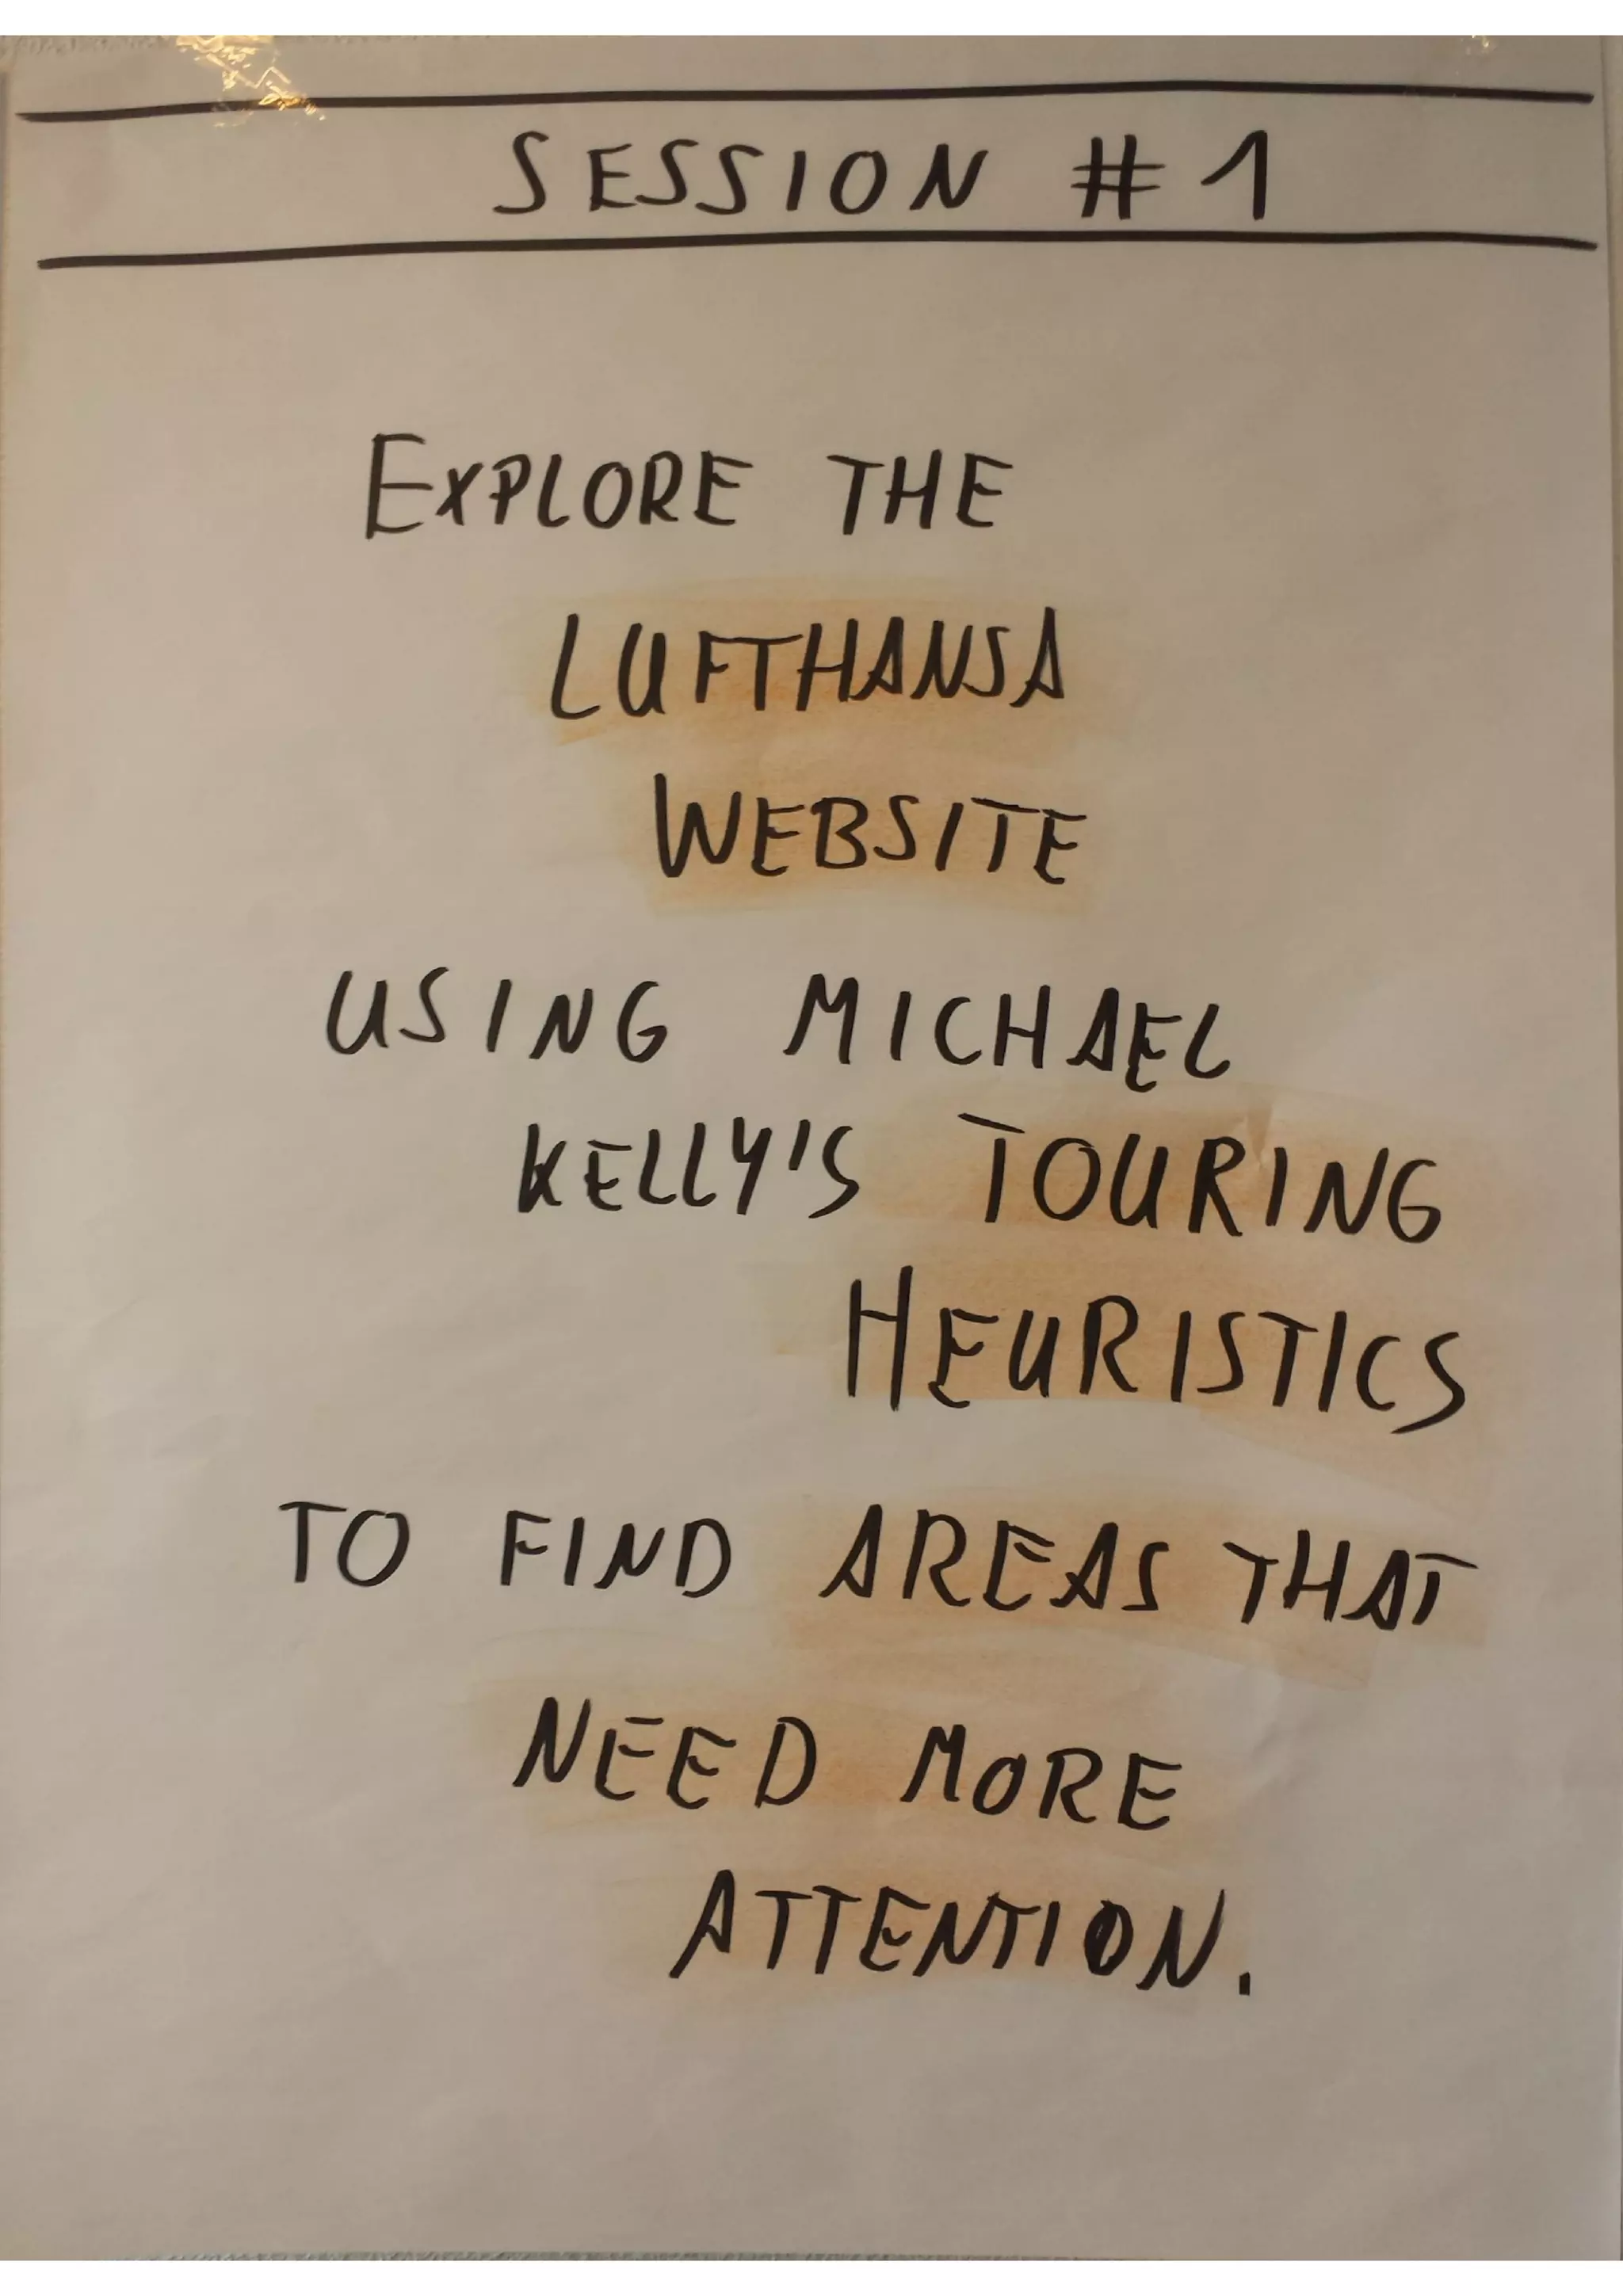 SESSION #1
EXPLORE THE
LUFTHANSA
WEBSITE
USING MICHAEL
KELLY'S TOURING
HEURISTICS
TO FIND AREAS THAT
NEED MORE
ATTENTION.